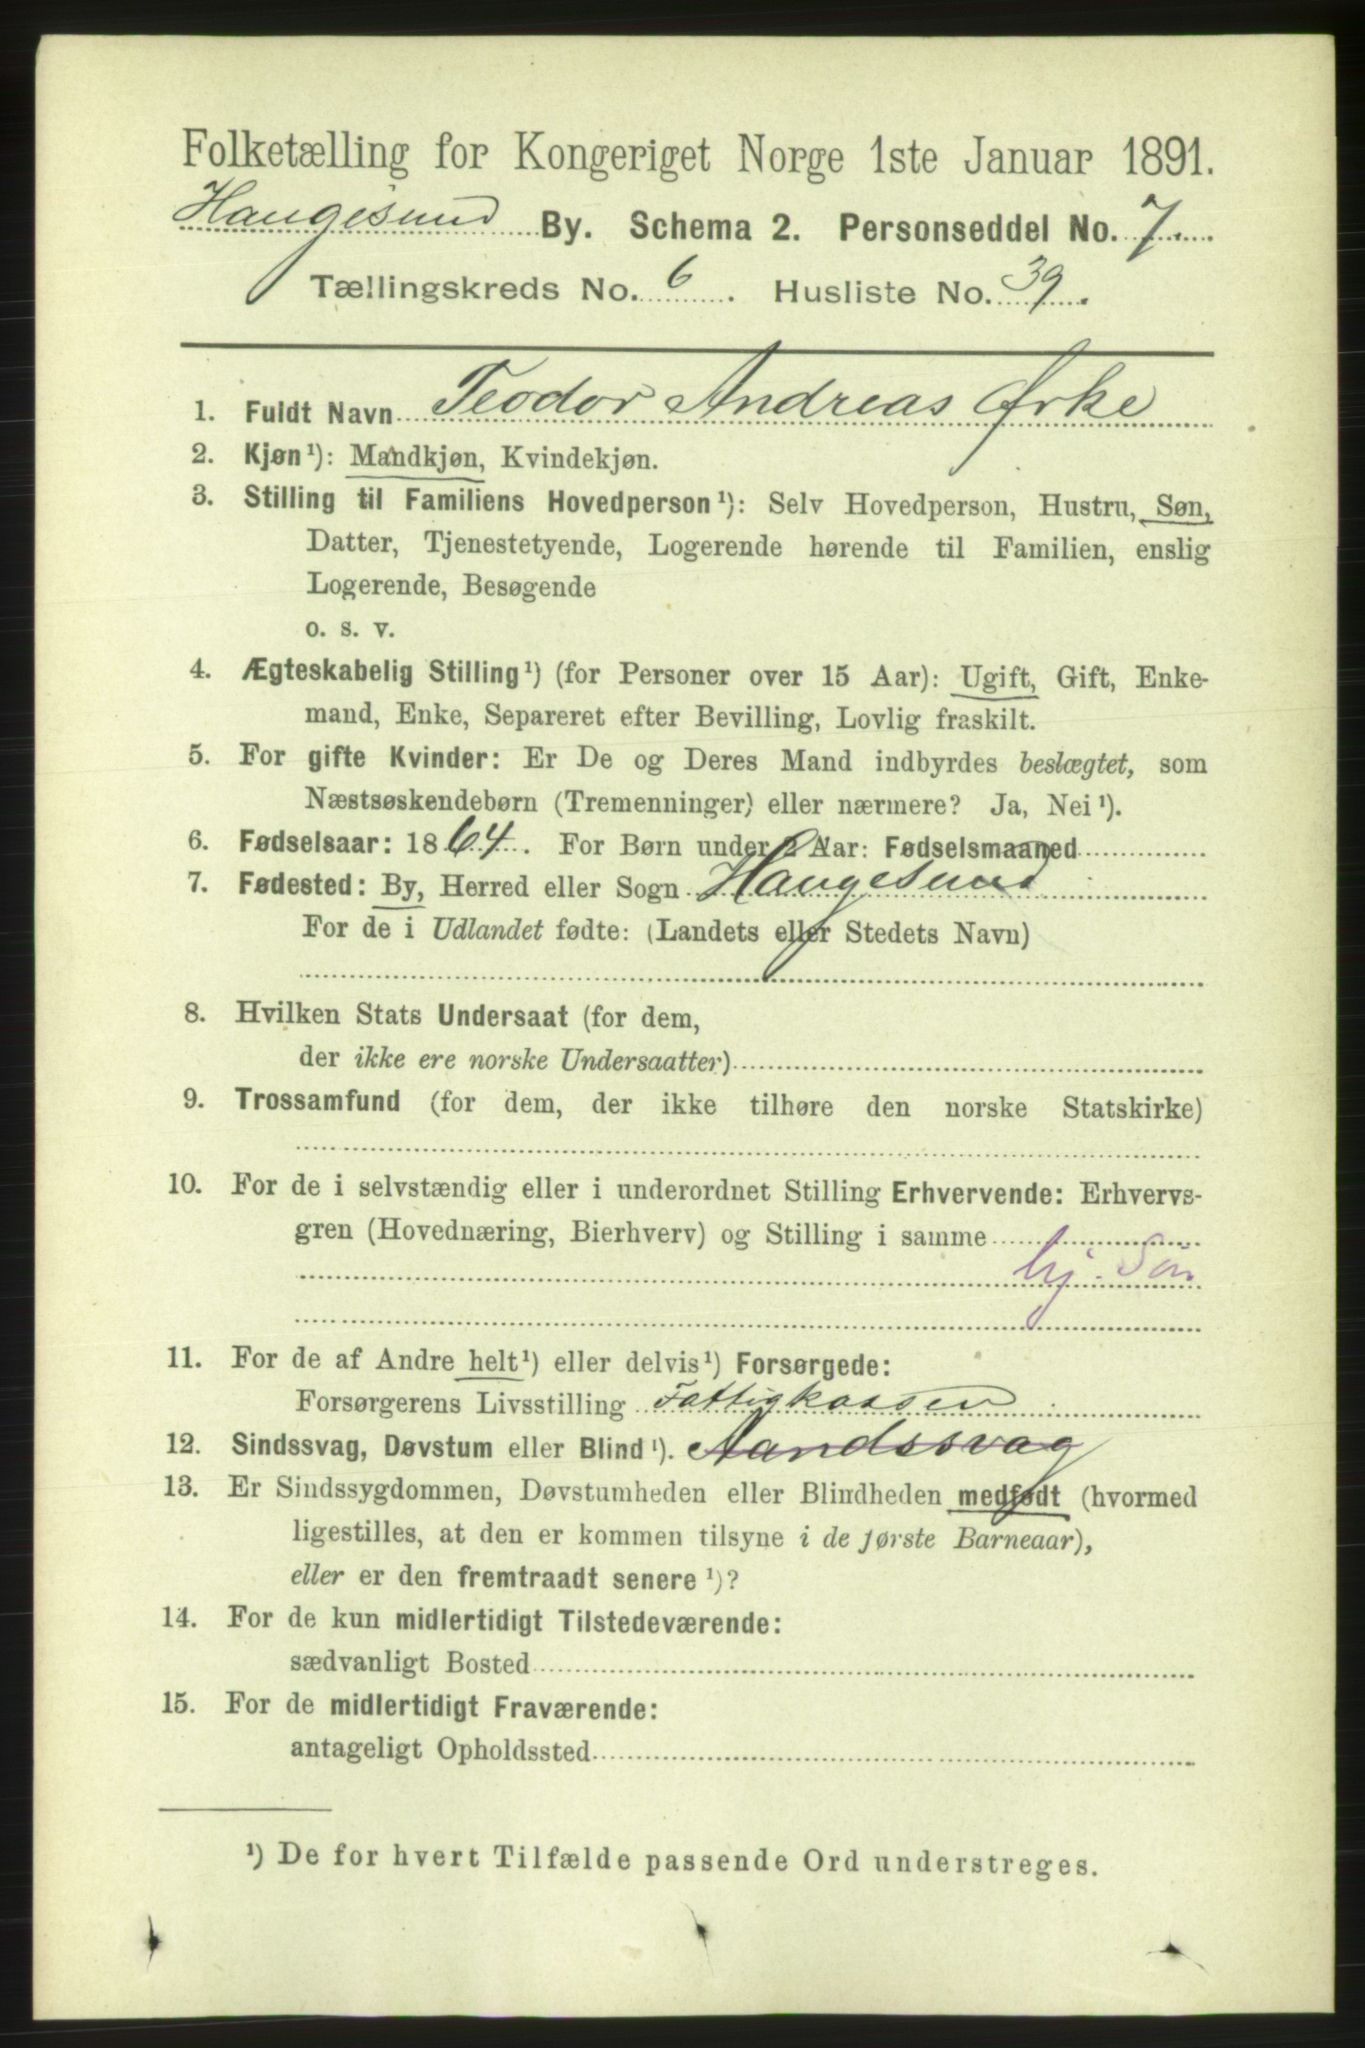 Folketælling for Kongeriget Norge 1ste Januar 1891.
Haugesund By. Schema 2. Personseddel No. 7.
Tællingskreds No. 6. Husliste No. 39.
1. Fuldt Navn Teodor Andreas Ørke
2. Kjøn¹): Mandkjøn, Kvindekjøn.
3. Stilling til Familiens Hovedperson¹): Selv Hovedperson, Hustru, Søn,
Datter, Tjenestetyende, Logerende hørende til Familien, enslig
Logerende, Besøgende
o. s. v.
4. Ægteskabelig Stilling¹) (for Personer over 15 Aar): Ugift, Gift, Enke-
mand, Enke, Separeret efter Bevilling, Lovlig fraskilt.
5. For gifte Kvinder: Er De og Deres Mand indbyrdes beslægtet, som
Næstsøskendebørn (Tremenninger) eller nærmere? Ja, Nei¹).
6. Fødselsaar: 1864. For Børn under 2 Aar: Fødselsmaaned
7. Fødested: By, Herred eller Sogn Haugesund
For de i Udlandet fødte: (Landets eller Stedets Navn)
8. Hvilken Stats Undersaat (for dem,
der ikke ere norske Undersaatter)
9. Trossamfund (for dem, der ikke tilhøre den norske Statskirke)
10. For de i selvstændig eller i underordnet Stilling Erhvervende: Erhvervs-
gren (Hovednæring, Bierhverv) og Stilling i samme
hj. Søn
11. For de af Andre helt¹) eller delvis¹) Forsørgede:
Forsørgerens Livsstilling Fattigkassen
12. Sindssvag, Døvstum eller Blind¹). Aandssvag
13. Er Sindssygdommen, Døvstumheden eller Blindheden medfødt (hvormed
ligestilles, at den er kommen tilsyne i de første Barneaar),
eller er den fremtraadt senere¹)?
14. For de kun midlertidigt Tilstedeværende:
sædvanligt Bosted
15. For de midlertidigt Fraværende:
antageligt Opholdssted
¹) De for hvert Tilfælde passende Ord understreges.